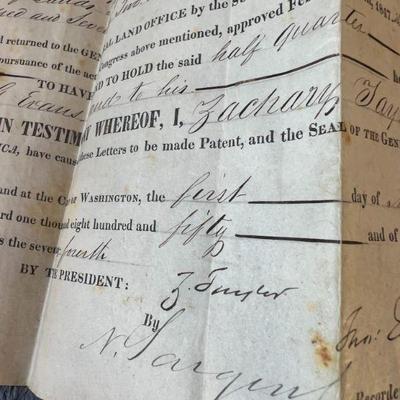 AL LAND OFFICE by the S
d returned to the GEN
Congress above mentioned, approved Fe 1847
pursuance of the act
AND TO HOLD the said half quarter
TO HAVE
Evans and to his
IN TESTIMONY WHEREOF, I, Zachary Tay
ICA, have caused these Letters to be made Patent, and the SEAL OF THE GEN
and at the City of WASHINGTON, the first day of
ord one thousand eight hundred and fifty and of
s the seventy fourth
BY THE PRESIDENT: Z. Taylor
By
N. Sargent
Recorder